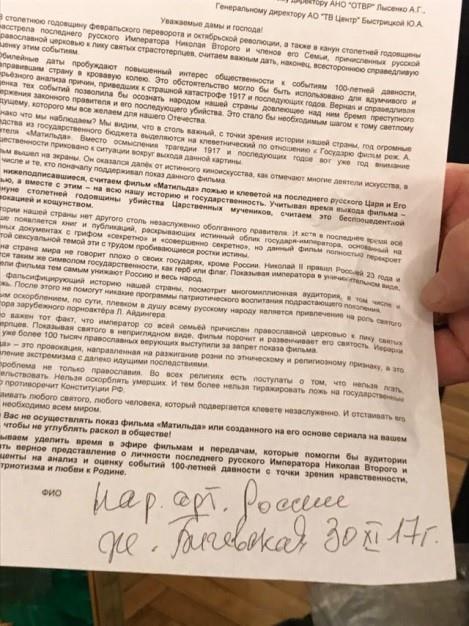 директору АНО «ОТВР» Лысенко А.Г.,
Генеральному директору АО "ТВ Центр" Быстрицкой Ю.А.
Уважаемые дамы и господа!
столетнюю годовщину февральского переворота и октябрьской революции, а также в канун столетней годовщины
расстрела последнего русского Императора Николая Второго и членов его Семьи, причисленных русской
православной церковью к лику святых страстотерпцев, считаем важным дать, наконец, всестороннюю справедливую
оценку этим событиям.
юбилейные даты пробуждают повышенный интерес общественности к событиям 100-летней давности,
направившим страну в кровавую колею. Это обстоятельство могло бы быть использовано для вдумчивого и
серьёзного анализа причин, приведших к страшной катастрофе 1917 и последующих годов. Верная и справедливая
оценка тех событий позволила бы осознать народом нашей страны довлеющее над ним бремя преступного
свержения законного правителя и его последующего убийства. Это стало бы необходимым шагом к тому светлому
будущему, которого мы все желаем для нашего Отечества.
однако что мы наблюдаем? Мы видим, что в столь важный, с точки зрения истории нашей страны, год огромные
средства из государственного бюджета выделяются на клеветнический по отношению к Государю фильм реж. А.
Учителя «Матильда». Вместо осмысления трагедии 1917 и последующих годов вот уже год внимание
общественности приковано к ситуации вокруг выхода данной картины.
фильм вышел на экраны. Он оказался далёк от истинного киноискусства, как отмечают многие деятели искусства, в
числе и те, кто поначалу поддерживал показ данного фильма.
нижеподписавшиеся, считаем фильм «Матильда» ложью и клеветой на последнего русского Царя и Его
Семью, а вместе с этим – на всю нашу историю и государственность. Учитывая время выхода фильма –
накануне столетней годовщины убийства Царственных мучеников, считаем это беспрецедентной
провокацией и кощунством.
истории нашей страны нет другого столь незаслуженно оболганного правителя. И хотя в последнее время всё
больше появляется книг и публикаций, раскрывающих истинный облик государя-императора, основанный на
архивных документах с грифом «секретно» и «совершенно секретно», но данный фильм полностью перекроет
этой сексуальной темой эти с трудом пробивающиеся ростки истины.
одна страна мира не говорит плохо о своих государях, кроме России. Николай II правил Россией 23 года и
является таким же символом государственности, как герб или флаг. Показывая императора в уничижительном виде,
создатели фильма тем самым унижают Россию и весь народ.
фальсифицирующий историю нашей страны, посмотрит многомиллионная аудитория, в том числе и
молодёжь. После этого не помогут никакие программы патриотического воспитания подрастающего поколения.
Особым оскорблением, по сути, плевком в душу всему русскому народу является привлечение на роль святого
императора зарубежного порноактёра Л. Айдингера.
важен тот факт, что император со всей семьёй причислен православной церковью к лику святых
страстотерпцев. Показывая святого в неприглядном виде, фильм порочит и развенчивает его святость. Иерархи
уже более 100 тысяч православных верующих выступили за запрет показа фильма.
«Матильда» – это провокация, направленная на разжигание розни по этническому и религиозному признаку, а это
проявление экстремизма с далеко идущими последствиями.
проблема не только православия. Во всех религиях есть постулаты о том, что нельзя лгать,
лжесвидетельствовать. Нельзя оскорблять умерших. И тем более нельзя тиражировать ложь на государственные
противоречит Конституции РФ.
отстаивать любого святого, любого человека, который подвергается клевете незаслуженно. И отстаивать его
необходимо всем миром.
Вас не осуществлять показ фильма «Матильда» или созданного на его основе сериала на вашем
чтобы не углублять раскол в обществе!
призываем уделить время в эфире фильмам и передачам, которые помогли бы аудитории
верное представление о личности последнего русского Императора Николая Второго и
акценты на анализ и оценку событий 100-летней давности с точки зрения нравственности,
патриотизма и любви к Родине.
ФИО
Нар. арт. России
Ж. Бичевская 30 XI 17г.